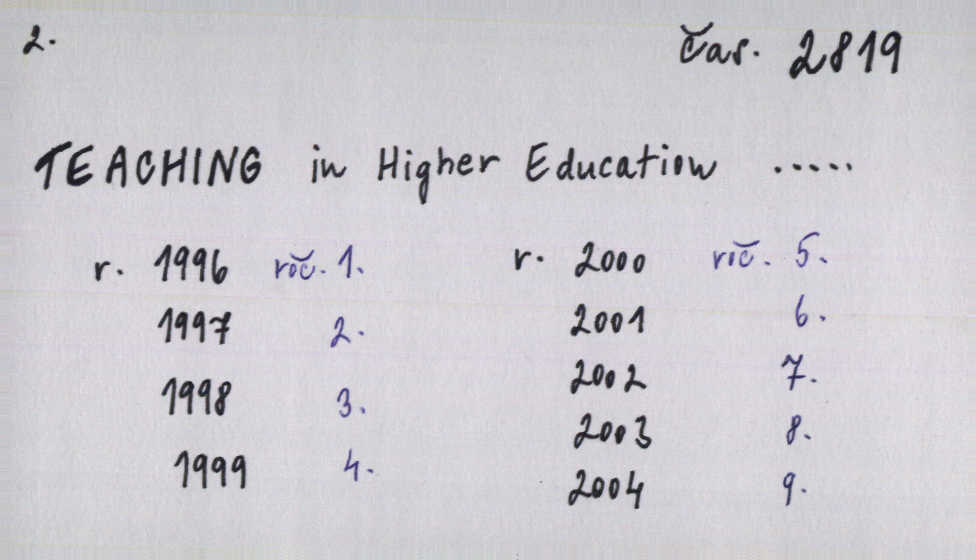 2. čas. 2819
TEACHING in Higher Education .....
r. 1996 roč. 1. r. 2000 roč. 5.
1997 2. 2001 6.
1998 3. 2002 7.
1999 4. 2003 8.
2004 9.